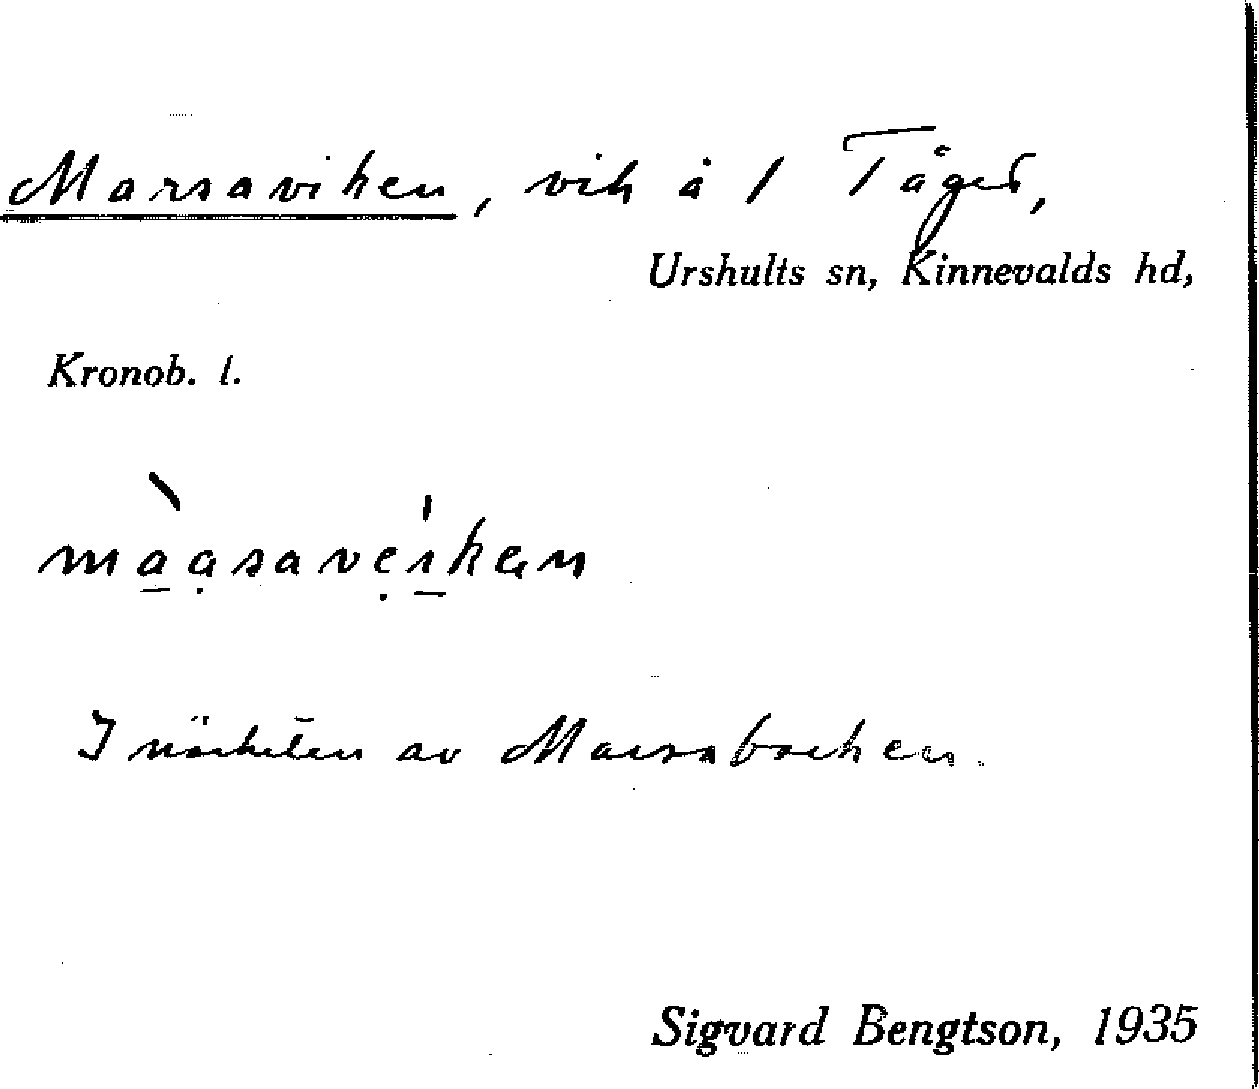 Marsaviken, vik å 1 Tåged,
Urshults sn, Kinnevalds hd,
Kronob. l.
I närheten av Marsabacken.
Sigvard Bengtson, 1935